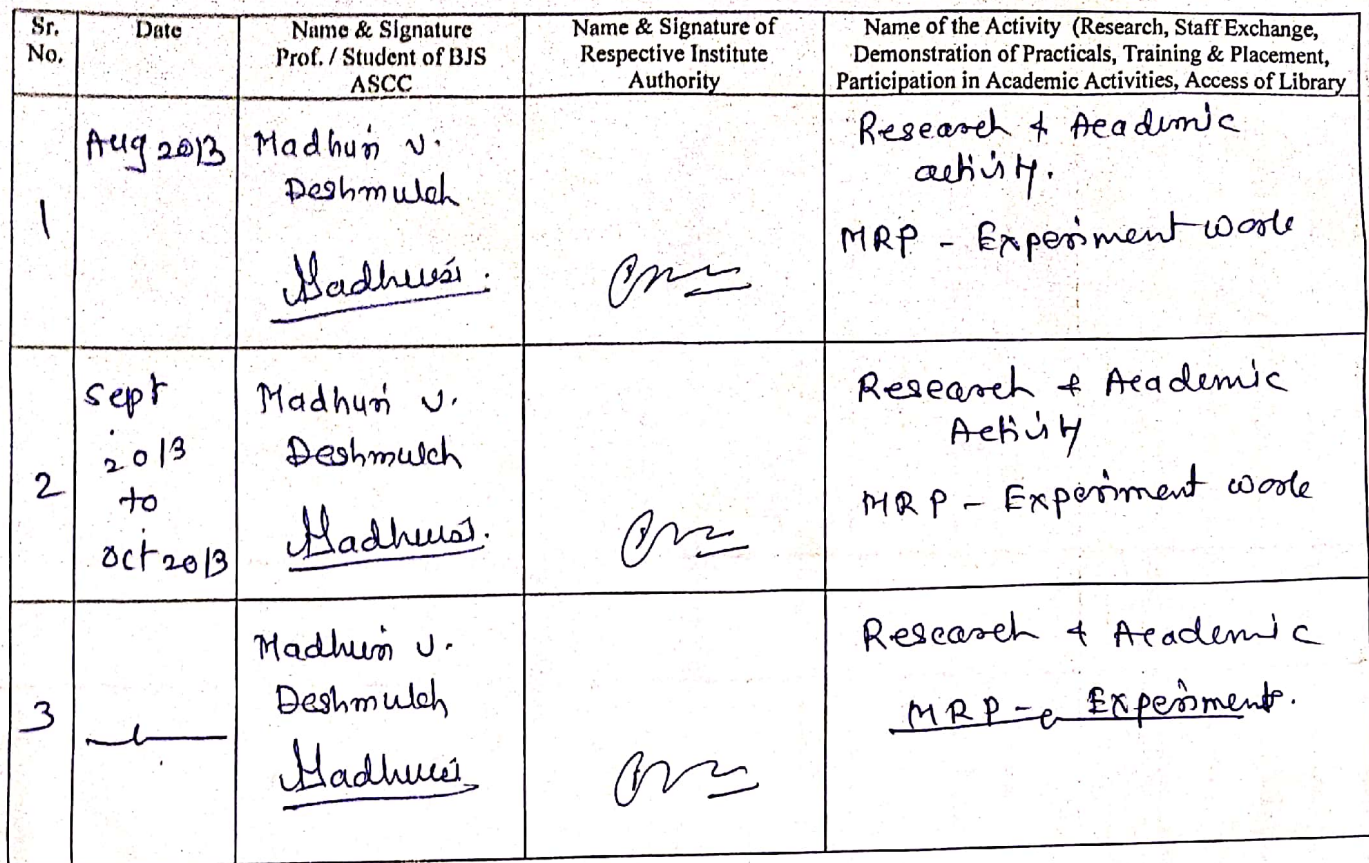 Sr. No.
Date
Name & Signature
Prof. / Student of BJS
ASCC
Name & Signature of
Respective Institute
Authority
Name of the Activity (Research, Staff Exchange,
Demonstration of Practicals, Training & Placement,
Participation in Academic Activities, Access of Library
1
Aug 2013
Madhuri V.
Deshmukh
Madhuri.
Research & Academic
activity.
MRP - Experiment work
2
Sept
2013
to
Oct 2013
Madhuri V.
Deshmukh
Madhuri.
Research & Academic
Activity
MRP - Experiment work
3
Madhuri V.
Deshmukh
Madhuri
Research & Academic
MRP - Experiment.